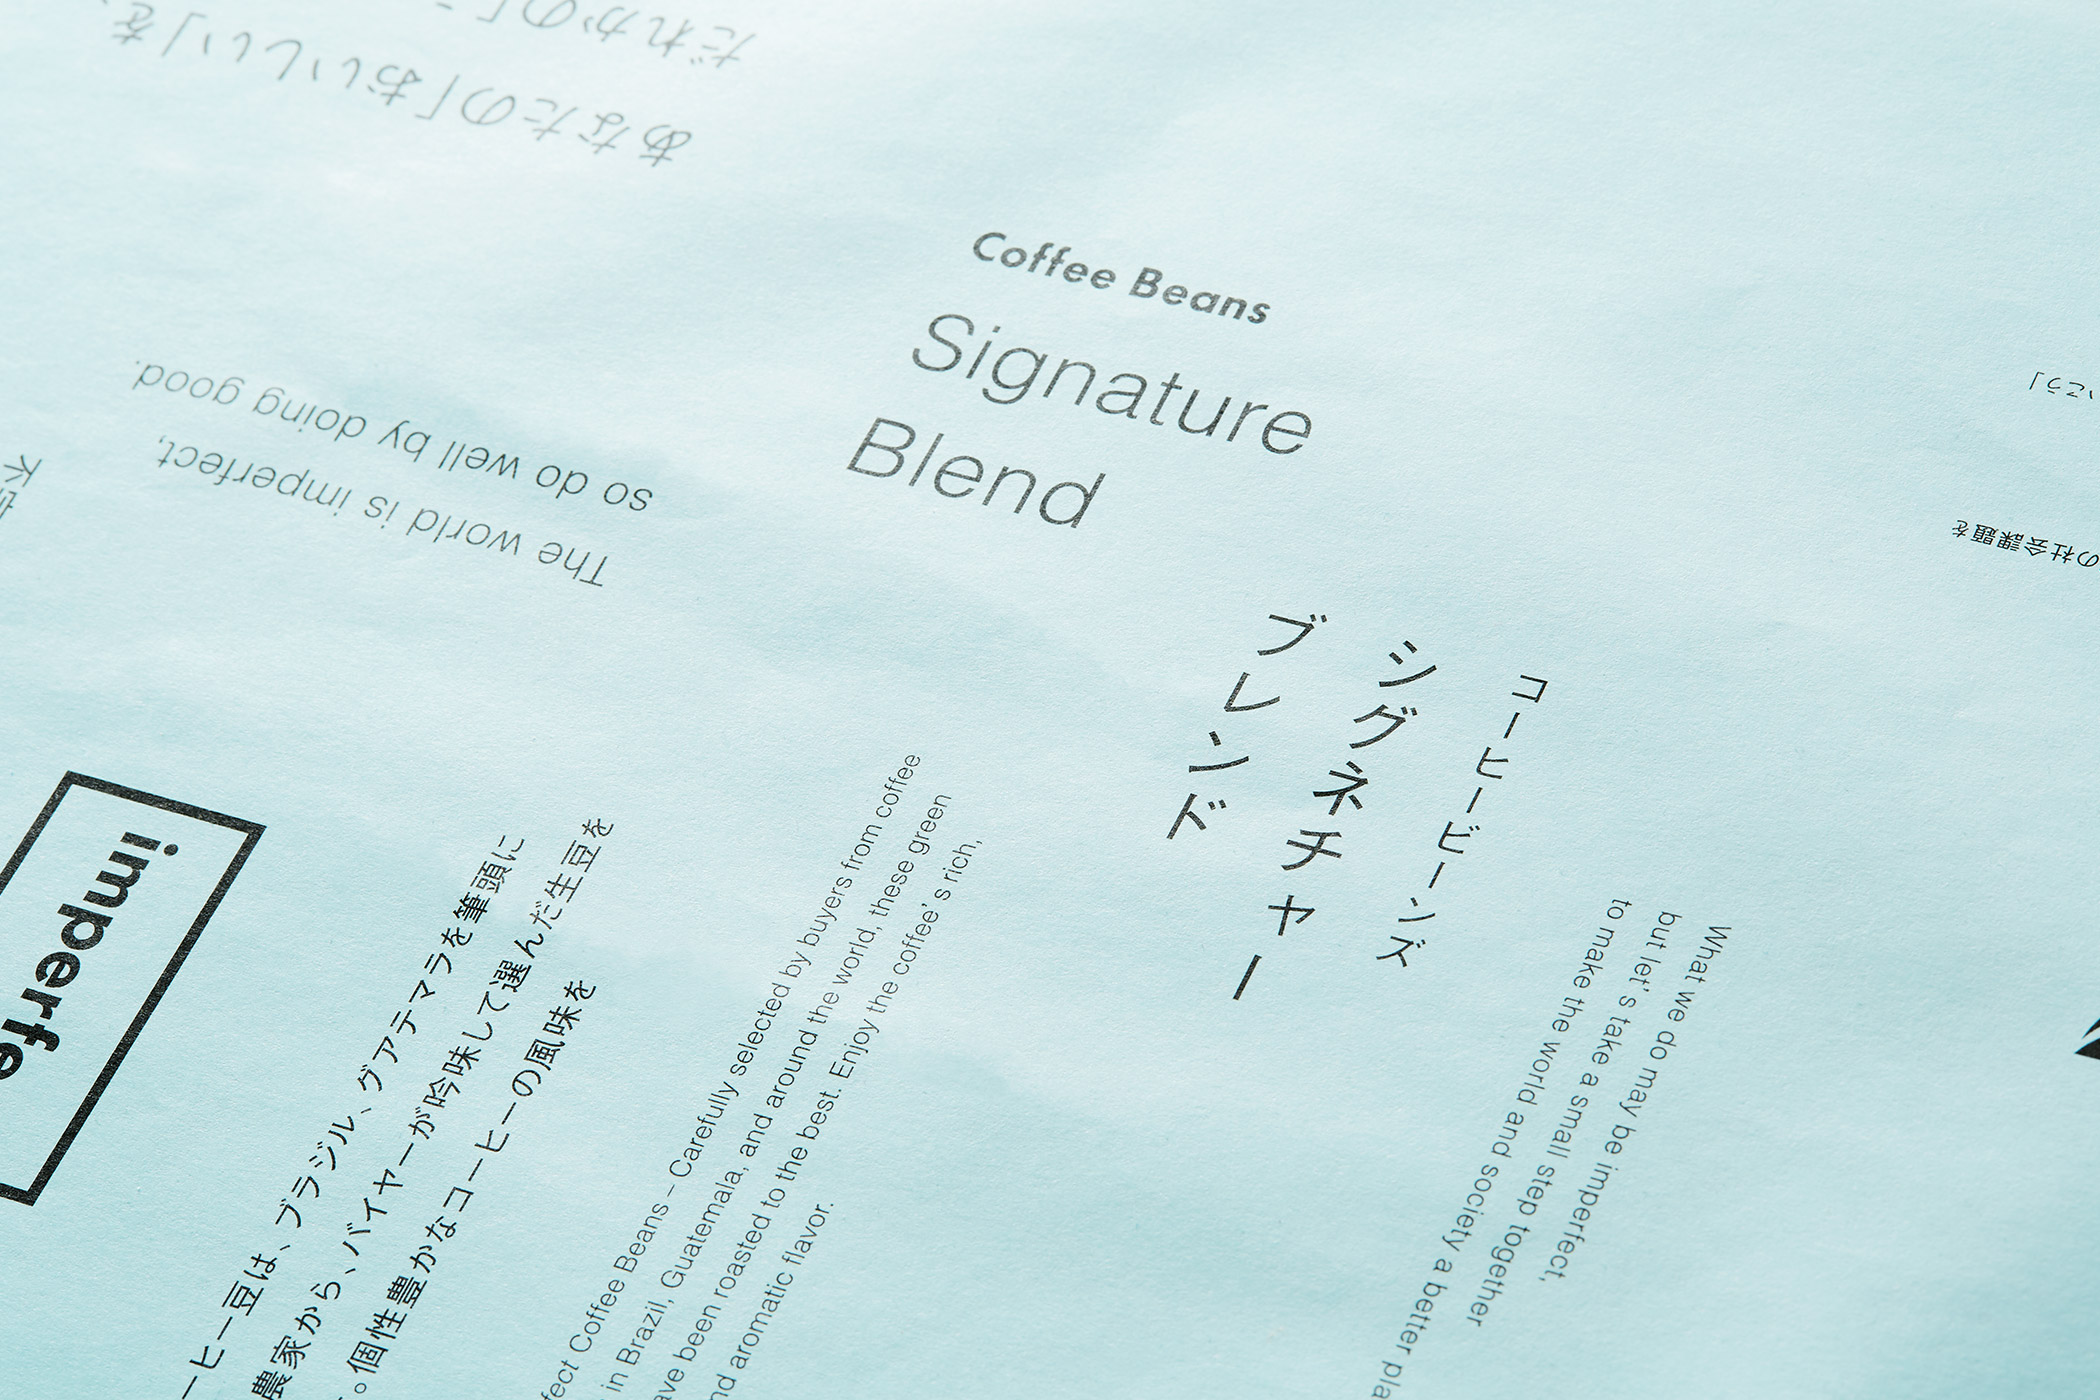 あなたの「おいしい」を、
だれかの「
Coffee Beans
Signature
Blend
The world is imperfect,
so do well by doing good.
コーヒービーンズ
シグネチャー
ブレンド
ーヒー豆は、ブラジル、グアテマラを筆頭に
農家から、バイヤーが吟味して選んだ生豆を
。個性豊かなコーヒーの風味を
Coffee Beans – Carefully selected by buyers from coffee
in Brazil, Guatemala, and around the world, these green
been roasted to the best. Enjoy the coffee's rich,
aromatic flavor.
What we do may be imperfect,
but let's take a small step together
to make the world and society a better
の社会課題を
いこう」
imperfe